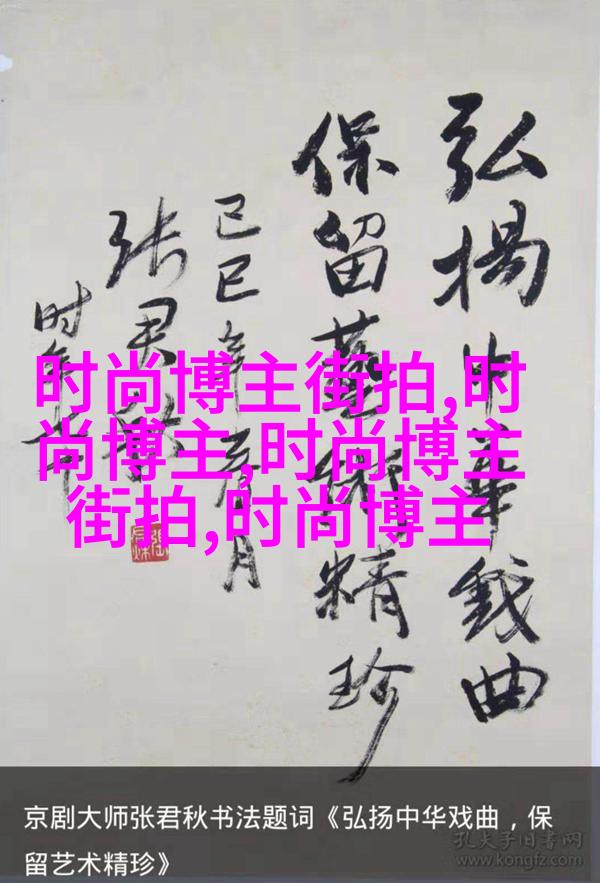 弘揚中華戲曲
保留藝術精珍
己巳年
月
张君秋
时年
时尚博主街拍,时
尚博主,时尚博主
街拍,时尚博主
京剧大师张君秋书法题词《弘扬中华戏曲，保
留艺术精珍》
孔夫子旧书网
www.kongfz.com